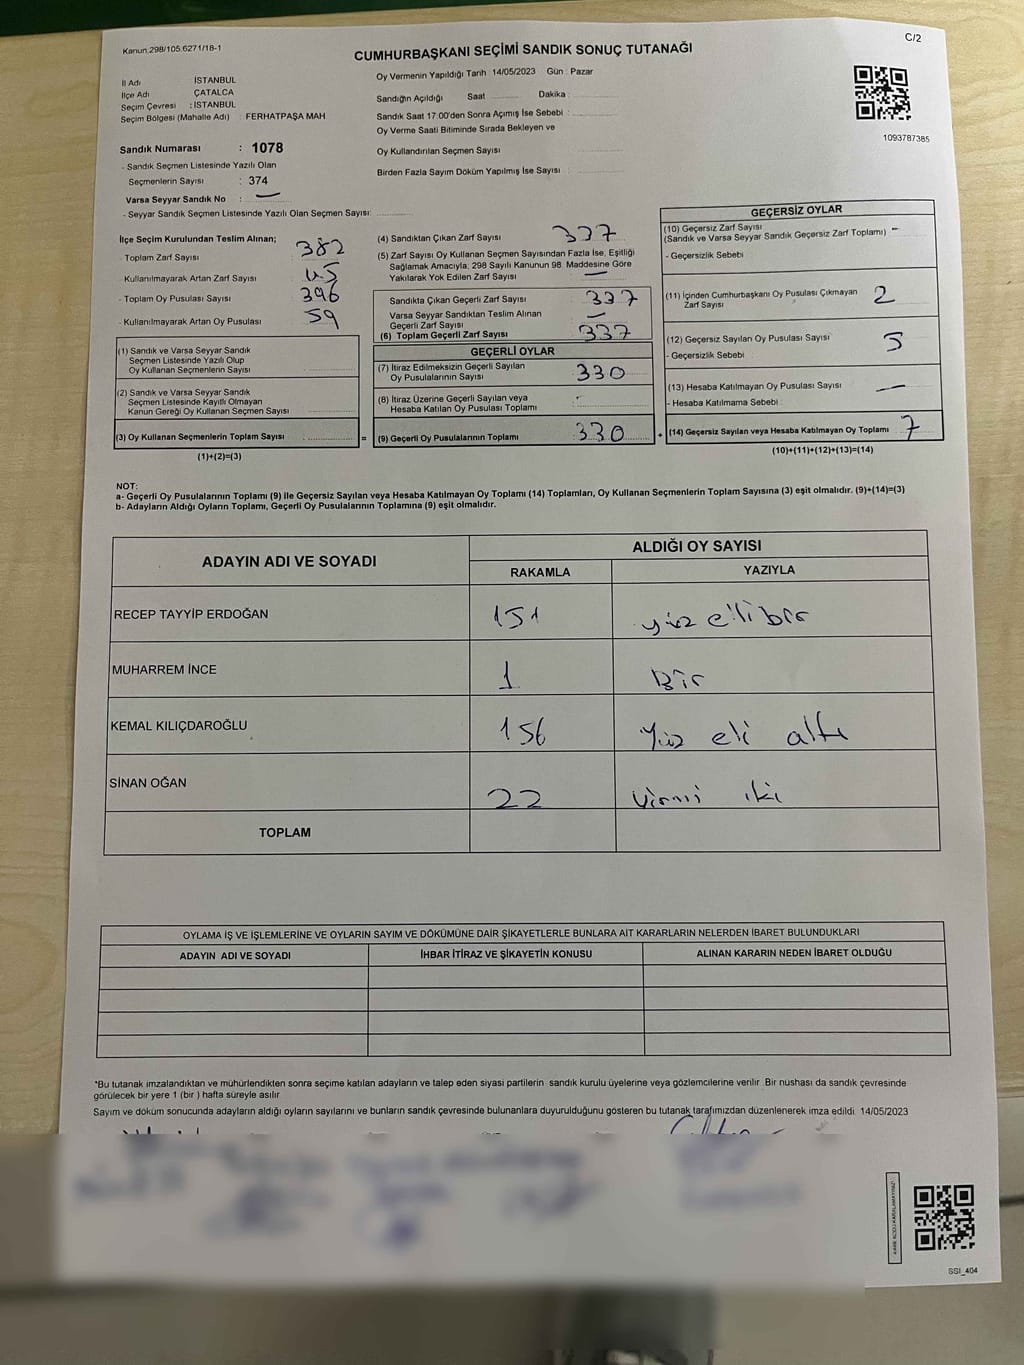 Kanun 298/105.6271/18-1
C/2
CUMHURBAŞKANI SEÇİMİ SANDIK SONUÇ TUTANAĞI
İl Adı : İSTANBUL
İlçe Adı : ÇATALCA
Seçim Çevresi : İSTANBUL
Seçim Bölgesi (Mahalle Adı) : FERHATPAŞA MAH
Sandık Numarası : 1078
- Sandık Seçmen Listesinde Yazılı Olan
Seçmenlerin Sayısı : 374
Varsa Seyyar Sandık No : —
- Seyyar Sandık Seçmen Listesinde Yazılı Olan Seçmen Sayısı:
Oy Vermenin Yapıldığı Tarih : 14/05/2023 Gün : Pazar
Sandığın Açıldığı Saat Dakika :
Sandık Saat 17:00'den Sonra Açımış İse Sebebi :
Oy Verme Saati Bitiminde Sırada Bekleyen ve
Oy Kullandırılan Seçmen Sayısı
Birden Fazla Sayım Döküm Yapılmış İse Sayısı :
1093787385
İlçe Seçim Kurulundan Teslim Alınan;
- Toplam Zarf Sayısı : 382
- Kullanılmayarak Artan Zarf Sayısı : 45
- Toplam Oy Pusulası Sayısı : 396
- Kullanılmayarak Artan Oy Pusulası : 59
(1) Sandık ve Varsa Seyyar Sandık
Seçmen Listesinde Yazılı Olup
Oy Kullanan Seçmenlerin Sayısı
(2) Sandık ve Varsa Seyyar Sandık
Seçmen Listesinde Kayıtlı Olmayan
Kanun Gereği Oy Kullanan Seçmen Sayısı
(3) Oy Kullanan Seçmenlerin Toplam Sayısı :
(1)+(2)=(3)
=
(4) Sandıktan Çıkan Zarf Sayısı 337
(5) Zarf Sayısı Oy Kullanan Seçmen Sayısından Fazla İse, Eşitliği
Sağlamak Amacıyla; 298 Sayılı Kanunun 98. Maddesine Göre
Yakılarak Yok Edilen Zarf Sayısı —
Sandıkta Çıkan Geçerli Zarf Sayısı 337
Varsa Seyyar Sandıktan Teslim Alınan
Geçerli Zarf Sayısı —
(6) Toplam Geçerli Zarf Sayısı 337
GEÇERLİ OYLAR
(7) İtiraz Edilmeksizin Geçerli Sayılan
Oy Pusulalarının Sayısı 330
(8) İtiraz Üzerine Geçerli Sayılan veya
Hesaba Katılan Oy Pusulası Toplamı -
(9) Geçerli Oy Pusulalarının Toplamı 330
+
GEÇERSİZ OYLAR
(10) Geçersiz Zarf Sayısı
(Sandık ve Varsa Seyyar Sandık Geçersiz Zarf Toplamı) -
- Geçersizlik Sebebi
(11) İçinden Cumhurbaşkanı Oy Pusulası Çıkmayan
Zarf Sayısı 2
(12) Geçersiz Sayılan Oy Pusulası Sayısı 5
- Geçersizlik Sebebi
(13) Hesaba Katılmayan Oy Pusulası Sayısı —
- Hesaba Katılmama Sebebi
(14) Geçersiz Sayılan veya Hesaba Katılmayan Oy Toplamı 7
(10)+(11)+(12)+(13)=(14)
NOT:
a- Geçerli Oy Pusulalarının Toplamı (9) ile Geçersiz Sayılan veya Hesaba Katılmayan Oy Toplamı (14) Toplamları, Oy Kullanan Seçmenlerin Toplam Sayısına (3) eşit olmalıdır. (9)+(14)=(3)
b- Adayların Aldığı Oyların Toplamı, Geçerli Oy Pusulalarının Toplamına (9) eşit olmalıdır.
ADAYIN ADI VE SOYADI
ALDIĞI OY SAYISI
RAKAMLA YAZIYLA
RECEP TAYYİP ERDOĞAN 151 yüz elli bir
MUHARREM İNCE 1 Bir
KEMAL KILIÇDAROĞLU 156 Yüz eli altı
SİNAN OĞAN 22 Yirmi iki
TOPLAM
OYLAMA İŞ VE İŞLEMLERİNE VE OYLARIN SAYIM VE DÖKÜMÜNE DAİR ŞİKAYETLERLE BUNLARA AİT KARARLARIN NELERDEN İBARET BULUNDUKLARI
ADAYIN ADI VE SOYADI İHBAR İTİRAZ VE ŞİKAYETİN KONUSU ALINAN KARARIN NEDEN İBARET OLDUĞU
*Bu tutanak imzalandıktan ve mühürlendikten sonra seçime katılan adayların ve talep eden siyasi partilerin sandık kurulu üyelerine veya gözlemcilerine verilir. Bir nüshası da sandık çevresinde
görülecek bir yere 1 (bir ) hafta süreyle asılır
Sayım ve döküm sonucunda adayların aldığı oyların sayılarını ve bunların sandık çevresinde bulunanlara duyurulduğunu gösteren bu tutanak tarafımızdan düzenlenerek imza edildi. 14/05/2023
SSI_404